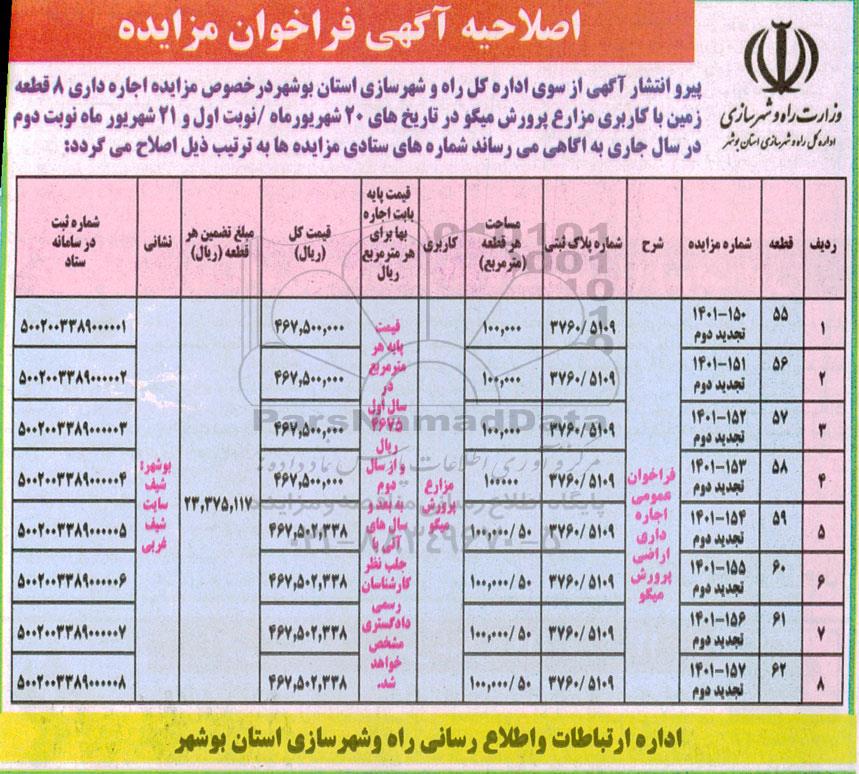 اصلاحیه آگهی فراخوان مزایده
وزارت راه و شهرسازی
اداره کل راه و شهرسازی استان بوشهر
پیرو انتشار آگهی از سوی اداره کل راه و شهرسازی استان بوشهر درخصوص مزایده اجاره داری ۸ قطعه
زمین با کاربری مزارع پرورش میگو در تاریخ های ۲۰ شهریورماه /نوبت اول و ۲۱ شهریور ماه نوبت دوم
در سال جاری به اگاهی می رساند شماره های ستادی مزایده ها به ترتیب ذیل اصلاح می گردد:
ردیف | قطعه | شماره مزایده | شرح | شماره پلاک ثبتی | مساحت هر قطعه (مترمربع) | کاربری | قیمت پایه بابت اجاره بها برای هر مترمربع ریال | قیمت کل (ریال) | مبلغ تضمین هر قطعه (ریال) | نشانی | شماره ثبت در سامانه ستاد
۱ | ۵۵ | ۱۴۰۱-۱۵۰ تجدید دوم | ۳۷۶۰/۵۱۰۹ | ۱۰۰,۰۰۰ | ۴۶۷,۵۰۰,۰۰۰ | ۵۰۰۲۰۰۳۳۸۹۰۰۰۰۰۱
۲ | ۵۶ | ۱۴۰۱-۱۵۱ تجدید دوم | ۳۷۶۰/۵۱۰۹ | ۱۰۰,۰۰۰ | ۴۶۷,۵۰۰,۰۰۰ | ۵۰۰۲۰۰۳۳۸۹۰۰۰۰۰۲
۳ | ۵۷ | ۱۴۰۱-۱۵۲ تجدید دوم | ۳۷۶۰/۵۱۰۹ | ۱۰۰,۰۰۰ | ۴۶۷,۵۰۰,۰۰۰ | ۵۰۰۲۰۰۳۳۸۹۰۰۰۰۰۳
۴ | ۵۸ | ۱۴۰۱-۱۵۳ تجدید دوم | ۳۷۶۰/۵۱۰۹ | ۱۰۰۰۰۰ | ۴۶۷,۵۰۰,۰۰۰ | ۵۰۰۲۰۰۳۳۸۹۰۰۰۰۰۴
۵ | ۵۹ | ۱۴۰۱-۱۵۴ تجدید دوم | ۳۷۶۰/۵۱۰۹ | ۱۰۰,۰۰۰/۵۰ | ۴۶۷,۵۰۲,۳۳۸ | ۵۰۰۲۰۰۳۳۸۹۰۰۰۰۰۵
۶ | ۶۰ | ۱۴۰۱-۱۵۵ تجدید دوم | ۳۷۶۰/۵۱۰۹ | ۱۰۰,۰۰۰/۵۰ | ۴۶۷,۵۰۲,۳۳۸ | ۵۰۰۲۰۰۳۳۸۹۰۰۰۰۰۶
۷ | ۶۱ | ۱۴۰۱-۱۵۶ تجدید دوم | ۳۷۶۰/۵۱۰۹ | ۱۰۰,۰۰۰/۵۰ | ۴۶۷,۵۰۲,۳۳۸ | ۵۰۰۲۰۰۳۳۸۹۰۰۰۰۰۷
۸ | ۶۲ | ۱۴۰۱-۱۵۷ تجدید دوم | ۳۷۶۰/۵۱۰۹ | ۱۰۰,۰۰۰/۵۰ | ۴۶۷,۵۰۲,۳۳۸ | ۵۰۰۲۰۰۳۳۸۹۰۰۰۰۰۸
فراخوان عمومی اجاره داری اراضی پرورش میگو
مزارع پرورش میگو
قیمت پایه هر مترمربع در سال اول ۴۶۷۵ ریال و از سال دوم به بعد و سال های آتی با جلب نظر کارشناسان رسمی دادگستری مشخص خواهد شد.
۲۳,۳۷۵,۱۱۷
بوشهر: شیف سایت شیف غربی
ParsNamadData
۰۲۱-۸۸۳۴۹۶۷۰-۵
اداره ارتباطات واطلاع رسانی راه وشهرسازی استان بوشهر